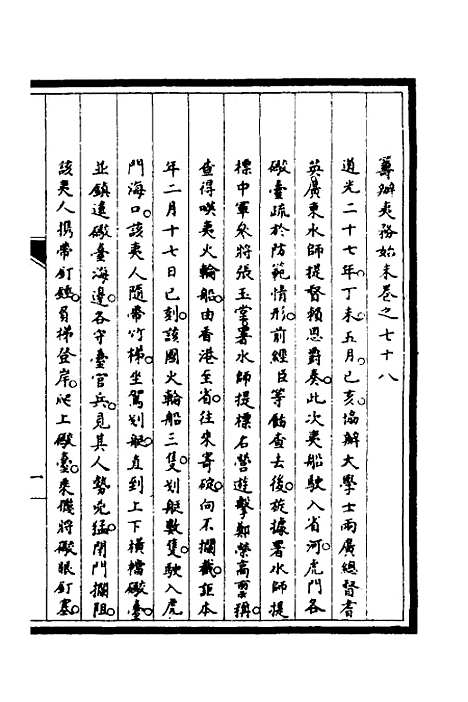 籌辦夷務始末卷之七十八
道光二十七年丁未五月己亥協辦大學士兩廣總督耆
英廣東水師提督賴恩爵奏此次夷船駛入省河虎門各
礮臺疏於防範情形前經臣等飭查去後旋據署水師提
標中軍參將張玉堂署水師提標右營遊擊鄭榮高稟稱
查得㗸夷火輪船由香港至省往來寄碇向不攔截詎本
年二月十七日巳刻該國火輪船三隻划艇數隻駛入虎
門海口該夷人隨帶竹梯坐駕划艇直到上下橫檔礮臺
並鎮遠礮臺海邊各守臺官兵見其人勢兇猛閉門攔阻
該夷人攜帶釘鎚負梯登岸爬上礮臺乘機將礮眼釘塞
一